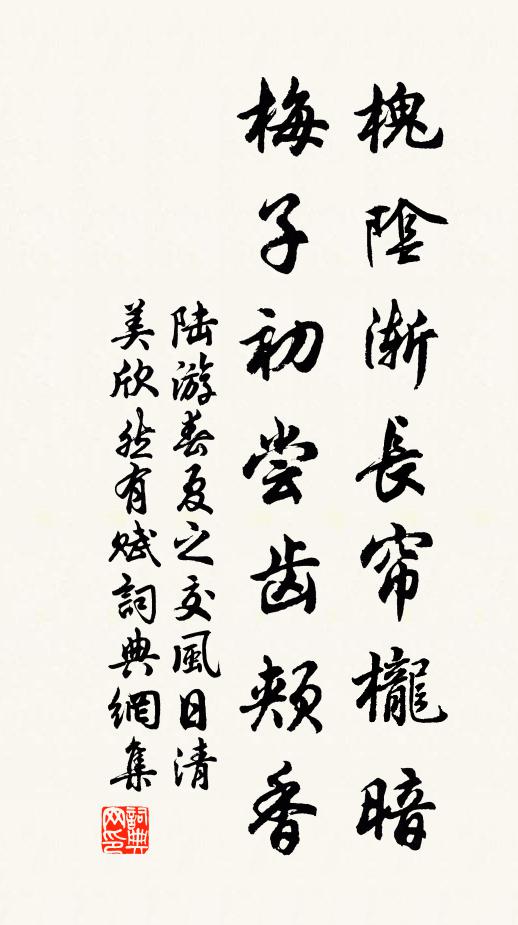 槐陰漸長帘櫳暗
梅子初尝齿頰香
陆游春夏之交風日清
美欣然有赋詞典網集
詞典
网印